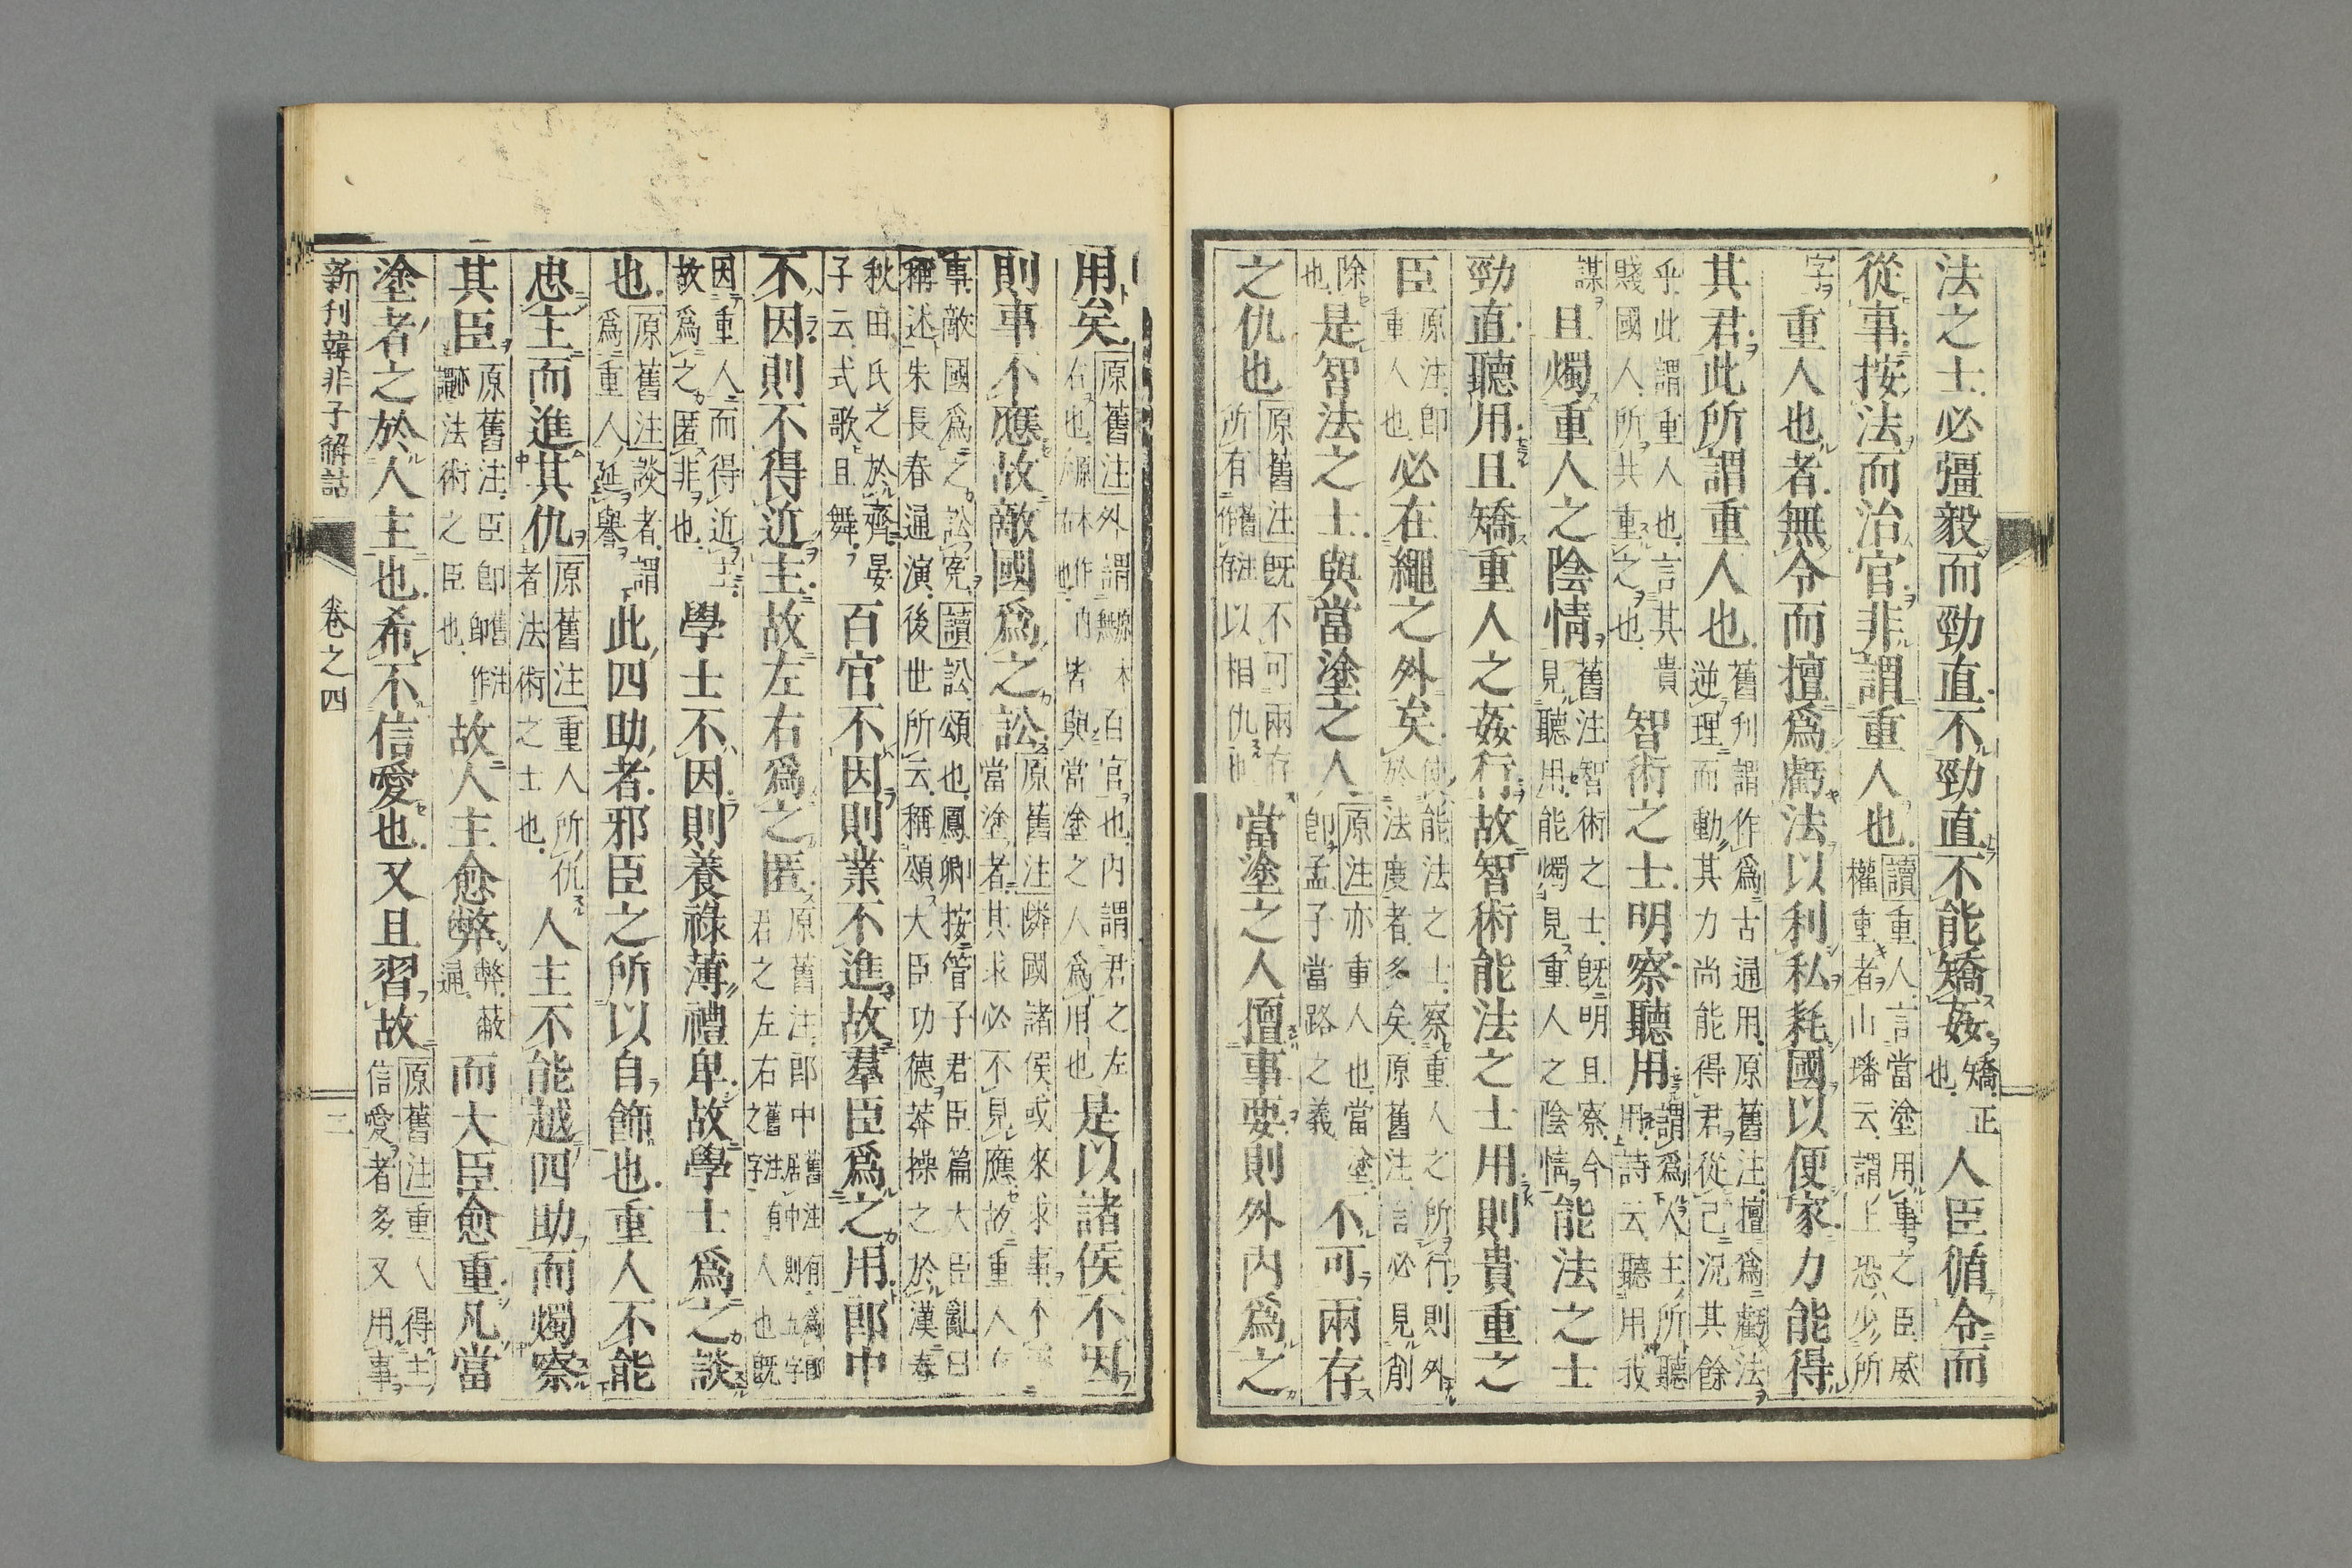 法之士必彊毅而勁直不勁直不能矯姦矯正也人臣循令而
從事按法而治官非謂重人也讀重人言當塗用事之臣威權重者山璠云謂上恐少所
字重人也者無令而擅爲虧法以利私耗國以便家力能得
其君此所謂重人也舊刊謂作爲古通用原舊注擅爲虧法逆理而動其力尚能得君從己況其餘
乎此謂重人也言其貴賤國人所共重之也智術之士明察聽用謂爲人主所聽用詩云聽用我
謀且燭重人之陰情舊注智術之士旣明且察今見聽用能燭見重人之陰情能法之士
勁直聽用且矯重人之姦行故智術能法之士用則貴重之
臣原注卽重人也必在繩之外矣使能法之士察重人之所行則外於法度者多矣原舊注言必見削
除也是智法之士與當塗之人原注亦重人也當塗卽孟子當路之義不可兩存
之仇也原舊注旣不可兩存所有舊注作存以相仇也當塗之人擅事要則外內爲之
用矣原舊注外謂百官也內謂君之左右也皆與當塗之人爲用也是以諸侯不因
則事不應故敵國爲之訟原舊注鄰國諸侯或來求事不因當塗者其求必不見應故重人有
事敵國爲之訟寃讀訟頌也鳳卿按管子君臣篇大臣亂曰稱述朱長春通演後世所云稱頌大臣功德莽操之於漢春
秋田氏之於齊晏子云式歌且舞百官不因則業不進故羣臣爲之用郎中
不因則不得近主故左右爲之匿原舊注郎中舊注有爲郎居中則五字君之左右舊注之字有人也旣
因重人而得近主故爲之匿非也學士不因則養祿薄禮卑故學士爲之談
也原舊注談者謂爲重人延譽此四助者邪臣之所以自飾也重人不能
忠主而進其仇原舊注重人所仇者法術之士也人主不能越四助而燭察
其臣原舊注臣卽舊注作郎跡謂法術之臣也故人主愈弊弊蔽通而大臣愈重凡當
塗者之於人主也希不信愛也又且習故原舊注重人得主信愛者多又用事
新刊韓非子解詁 卷之四 三